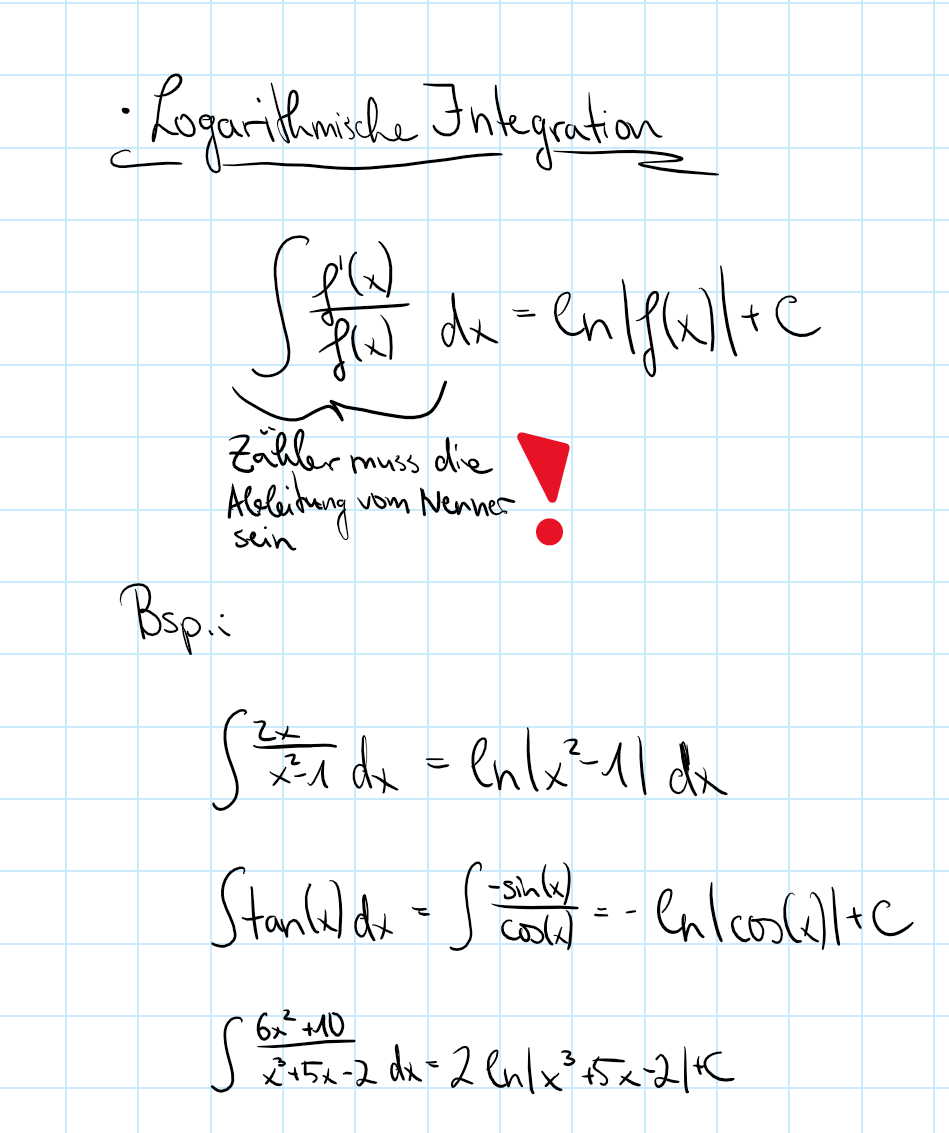 · Logarithmische Integration
∫ f'(x)/f(x) dx = ln|f(x)| + C
Zähler muss die
Ableitung vom Nenner
sein
!
Bsp.:
∫ 2x/x²-1 dx = ln|x²-1| dx
∫tan(x) dx = ∫ -sin(x)/cos(x) = - ln|cos(x)|+C
∫ 6x²+10/x³+5x-2 dx = 2 ln|x³+5x-2|+C